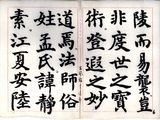 陵而易襲豈
非度世之寶
術登遐之妙
道焉法師俗
姓孟氏諱靜
素江夏安陸